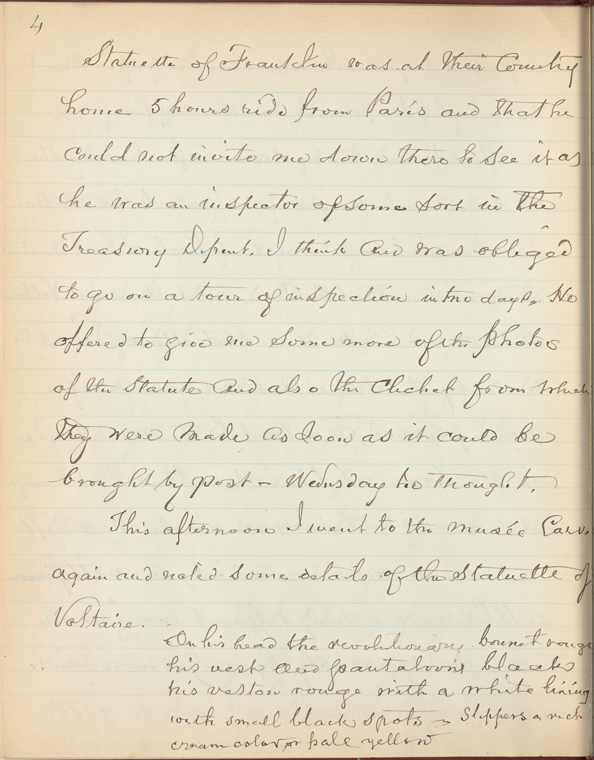 4
Statuette of Franklin was at their Country
home 5 hours ride from Paris and that he
could not invite me down there to see it as
he was an inspector of some sort in the
Treasury Depmt. I think and was obliged
to go on a tour of inspection in two days. He
offered to give me some more of the photos
of the Statute and also the Clichet from which
they were made as soon as it could be
brought by post - Wednesday he thought.
This afternoon I went to the musée Carv.
again and noted some details of the Statuette of
Voltaire.
On his head the revolutionary bonnet rouge
his vest and pantaloons black
his veston rouge with a white lining
with small black spots - Slippers a rich
cream color or pale yellow